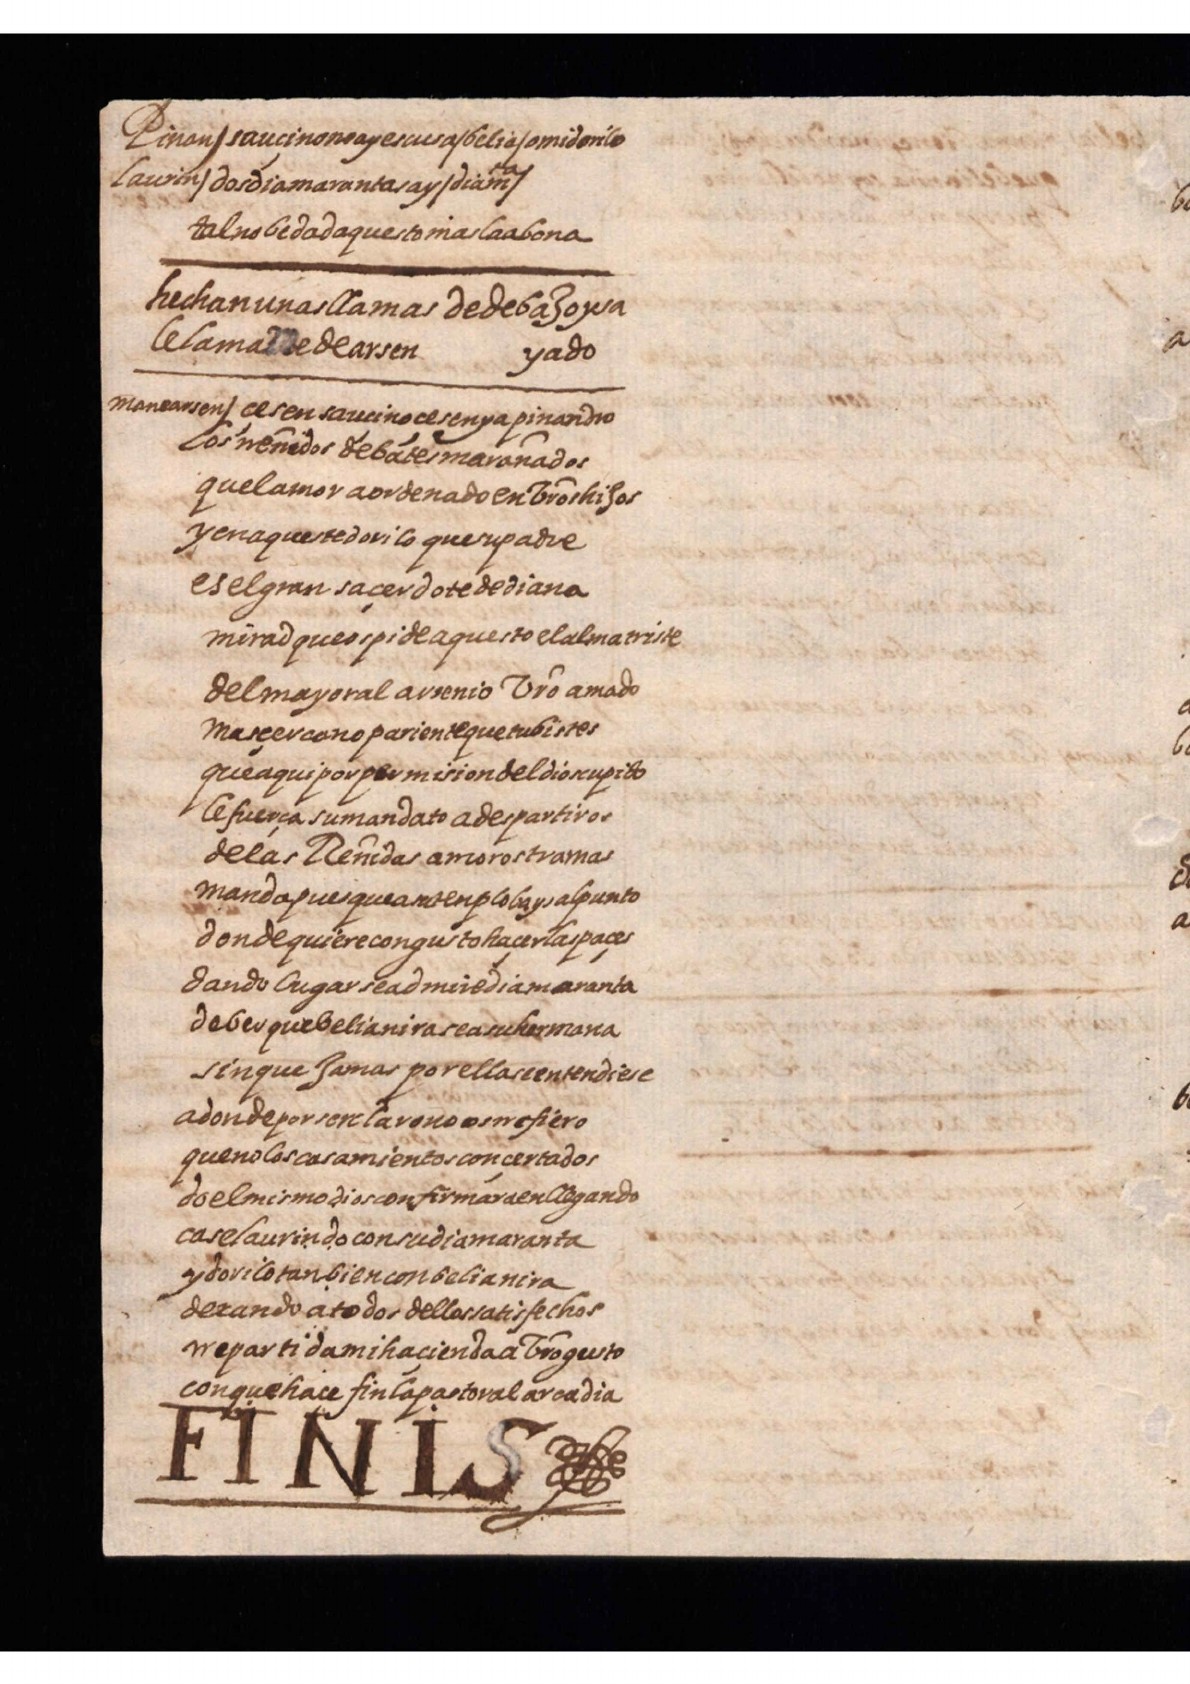 Pinan/ saucino no ay escusa/ belia/ o mi dorilo
laurin/ dos diamarantas ay/ diamta/
tal nobedad aquesto mas la abona
hechan unas llamas de debaJo y sa
le la ma de de arsen yado
manearsen/ cesen saucino cesen ya pinandro
los rreñidos debates marañados
que lamor a ordenado en Vros hiJos
y en aqueste dorilo que su padre
es el gran sacerdote de diana
mirad que os pide aquesto el alma triste
del mayoral arsenio Vro amado
mas cercano pariente que tubistes
que aqui por permision del dios cupido
le fuerça su mandato a despartiros
de las Reñidas amoros tramas
manda pues que a su tenplo bays al punto
donde quiere con gusto hacer las paces
dando lugar se admire diamaranta
de ber que belianira sea su hermana
sin que Jamas por ellas se entendiese
a donde por ser claro no os rrefiero
que no los casamientos concertados
do el mismo dios confirmara en llegando
case laurindo con su diamaranta
y dorilo tanbien con belianira
dexando a todos dellos satisfechos
rrepartida mi hacienda a Vro gusto
con que hace fin la pastoral arcadia
FINIS